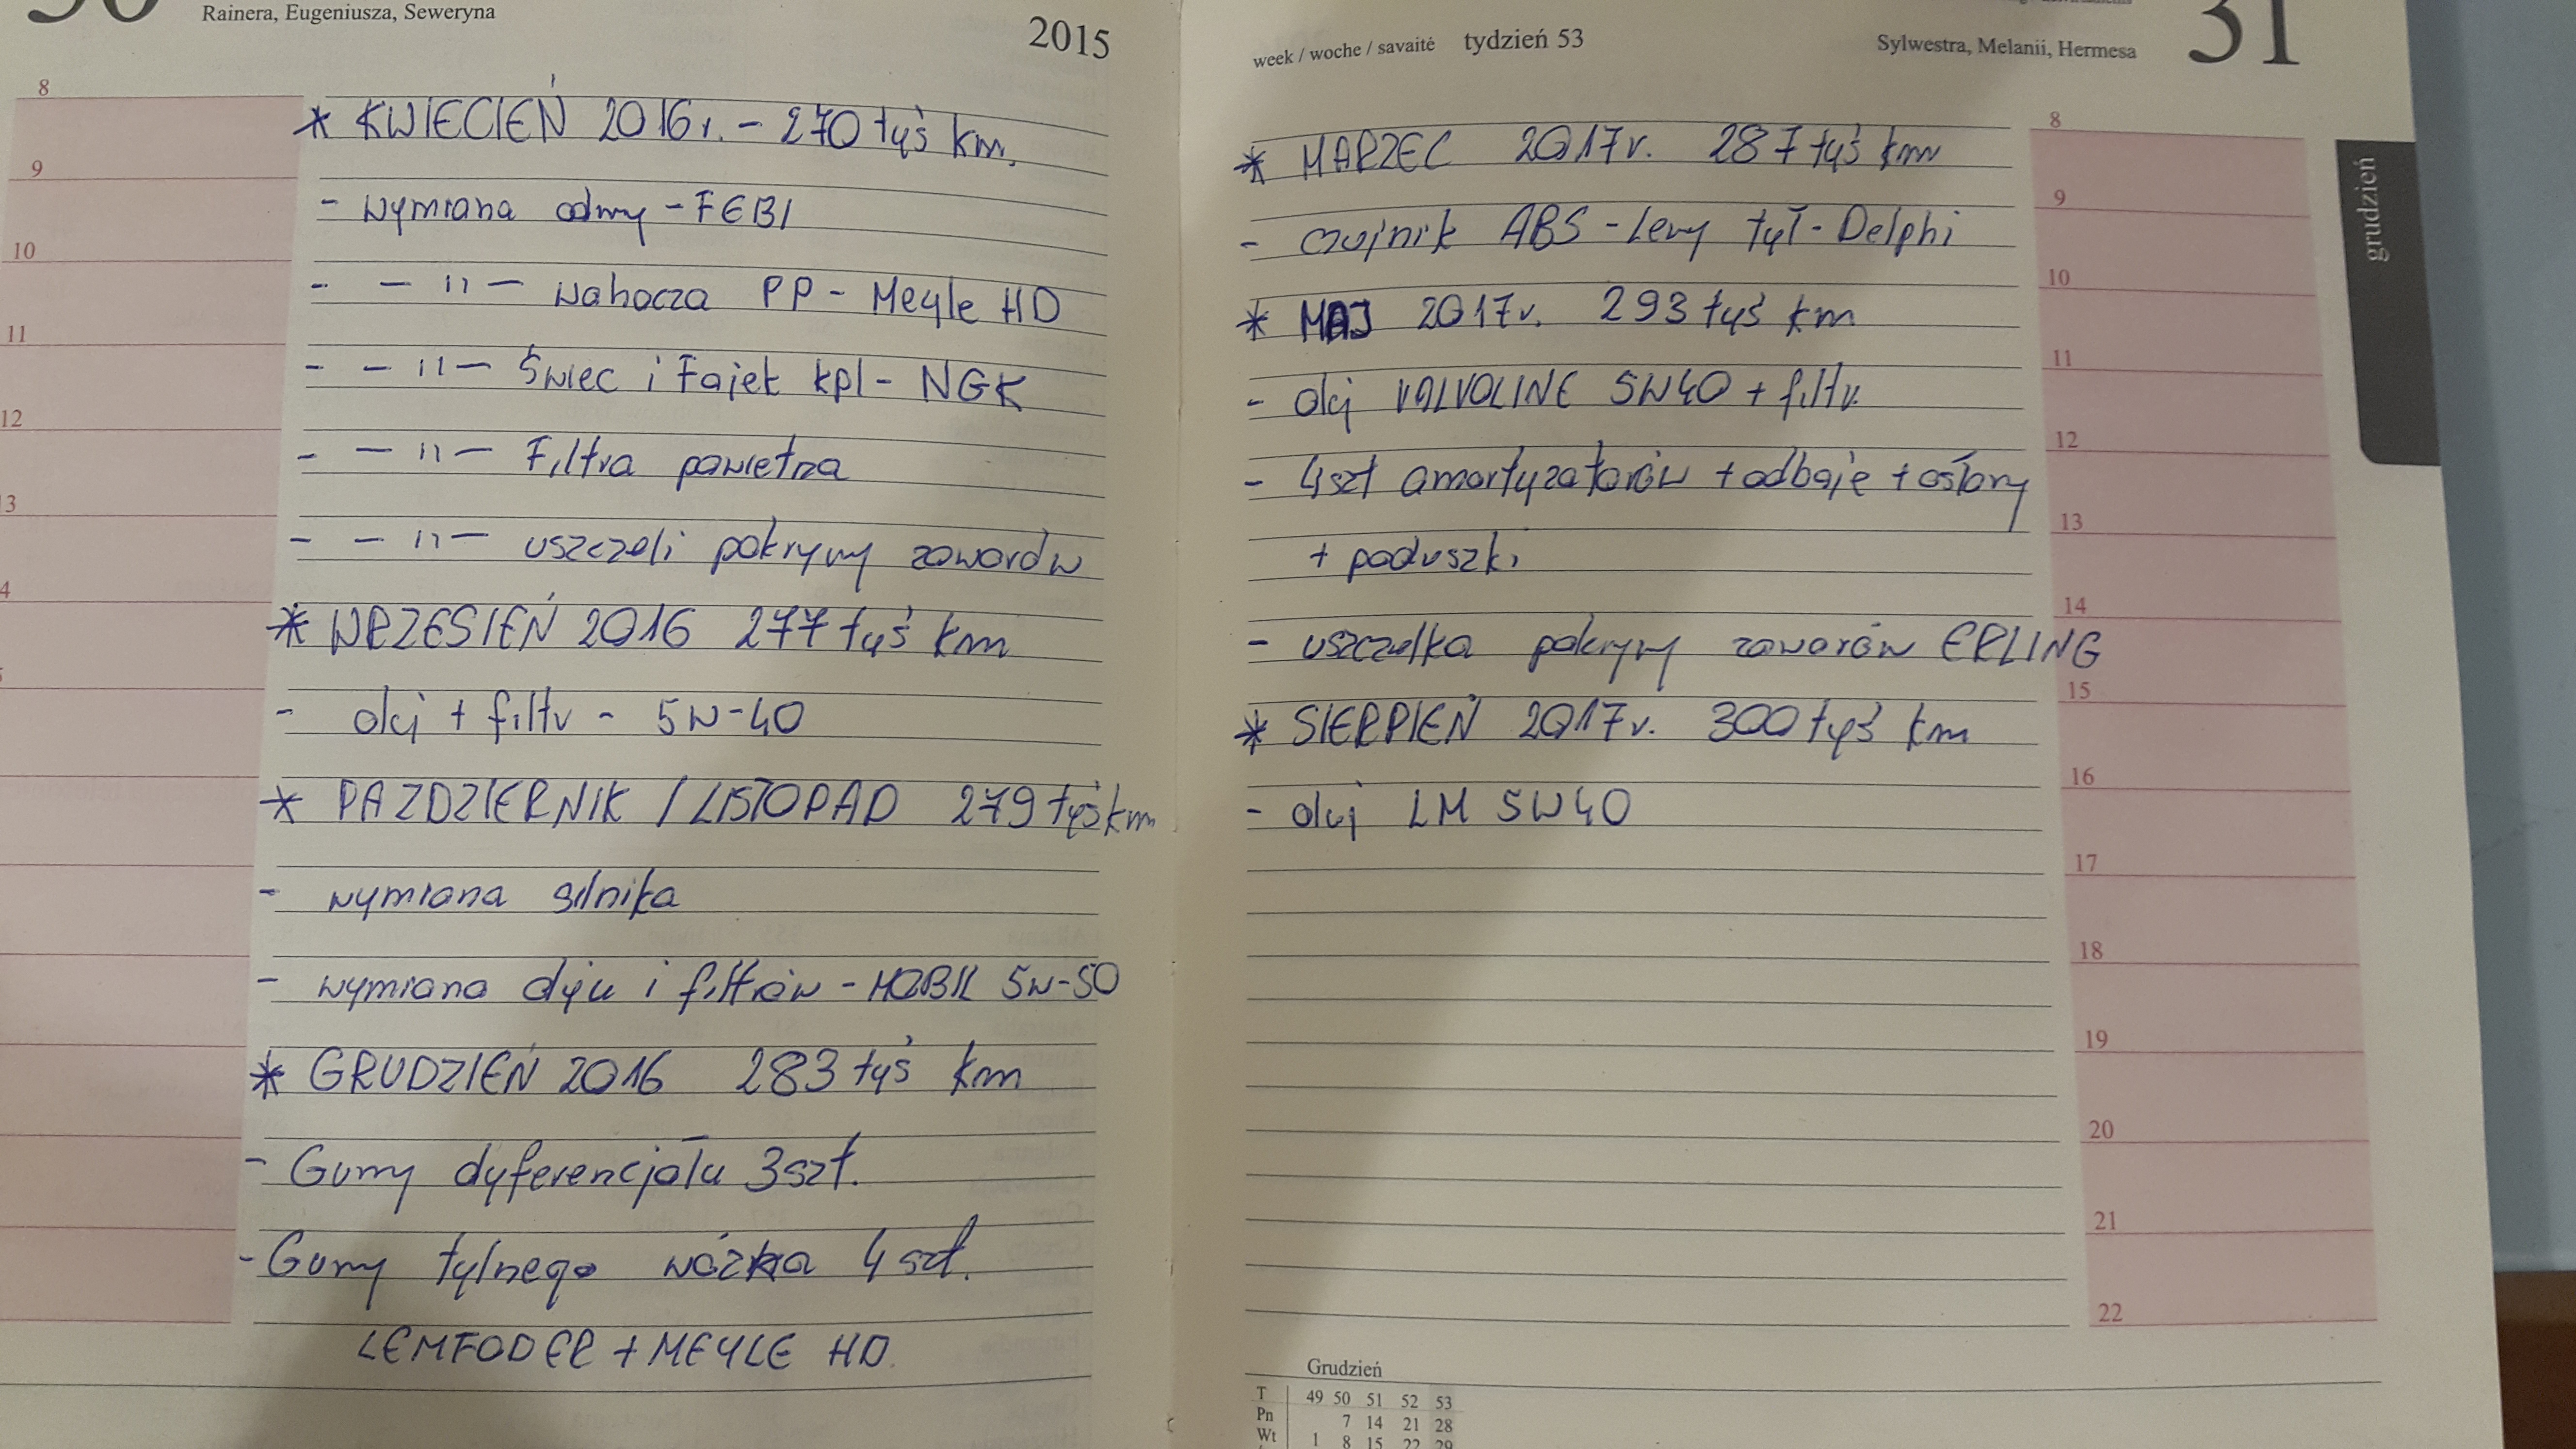 Rainera, Eugeniusza, Seweryna
2015
8
9
10
11
12
13
* KWIECIEŃ 2016r. - 270 tyś km.
- wymiana odmy - FEBI
- — " — wahacza PP - Meyle HD
- — " — Świec i Fajek kpl - NGK
- — " — Filtra powietrza
- — " — uszczelki pokrywy zaworów
* WRZESIEŃ 2016 277 tyś km
- olej + filtr - 5W-40
* PAZDZIERNIK / LISTOPAD 279 tyś km
- wymiana silnika
- wymiana oleju i filtrów - MOBIL 5W-50
* GRUDZIEŃ 2016 283 tyś km
- Gumy dyferencjału 3szt.
- Gumy tylnego wózka 4 szt.
LEMFODER + MEYLE HD
week / woche / savaitė tydzień 53
Sylwestra, Melanii, Hermesa
31
* MARZEC 2017r. 287 tyś km
- czujnik ABS - Lewy tył - Delphi
* MAJ 2017r. 293 tyś km
- olej VALVOLINE 5W40 + filtr
- 4szt amortyzatorów + odboje + osłony
+ poduszki
- uszczelka pokrywy zaworów ERLING
* SIERPIEŃ 2017r. 300 tyś km
- olej LM 5W40
8
9
10
11
12
13
14
15
16
17
18
19
20
21
22
grudzień
Grudzień
T 49 50 51 52 53
Pn 7 14 21 28
Wt 1 8 15 22 29